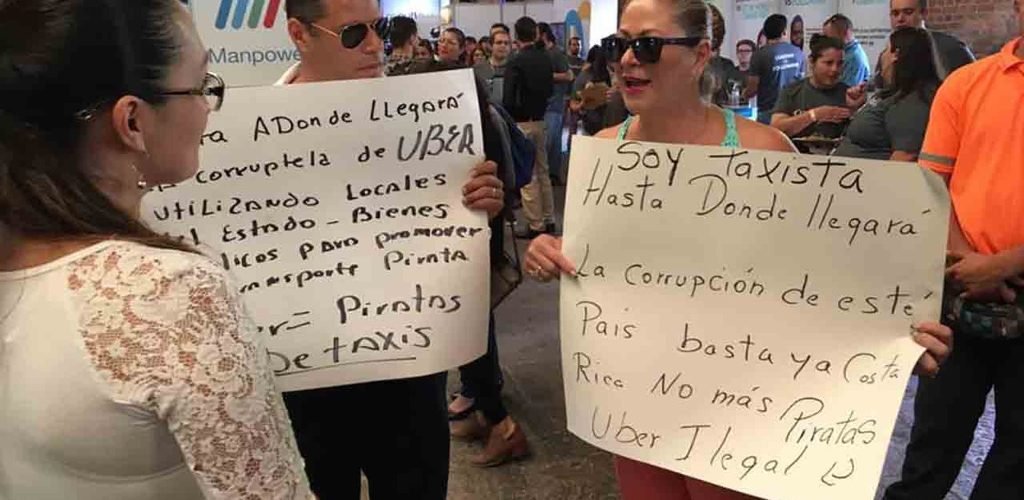 Manpowe
ra ADonde llegará
corruptela de UBER
utilizando Locales
Estado - Bienes
licos para promover
nsporte Pirata
r= Piratas
De taxis
Soy taxista
Hasta Donde llegará
La corrupción de esté
Pais basta ya Costa
Rica No más Piratas
Uber Ilegal